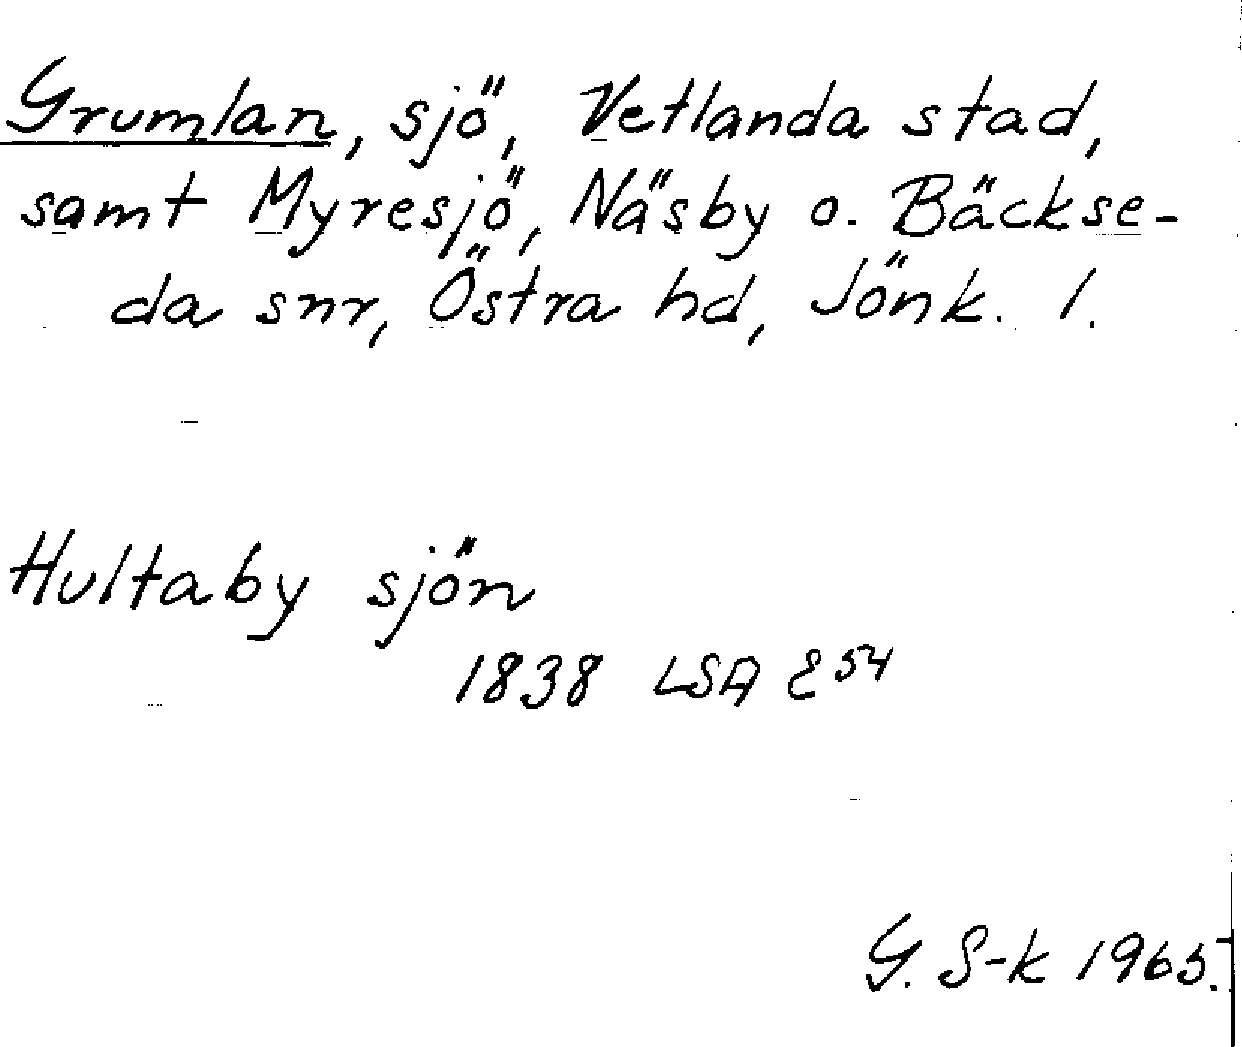 Grumlan, sjö, Vetlanda stad,
samt Myresjö, Näsby o. Bäckse-
da snr, Östra hd, Jönk. l.
Hultaby sjön
1838 LSA E54
G. S-k 1965.